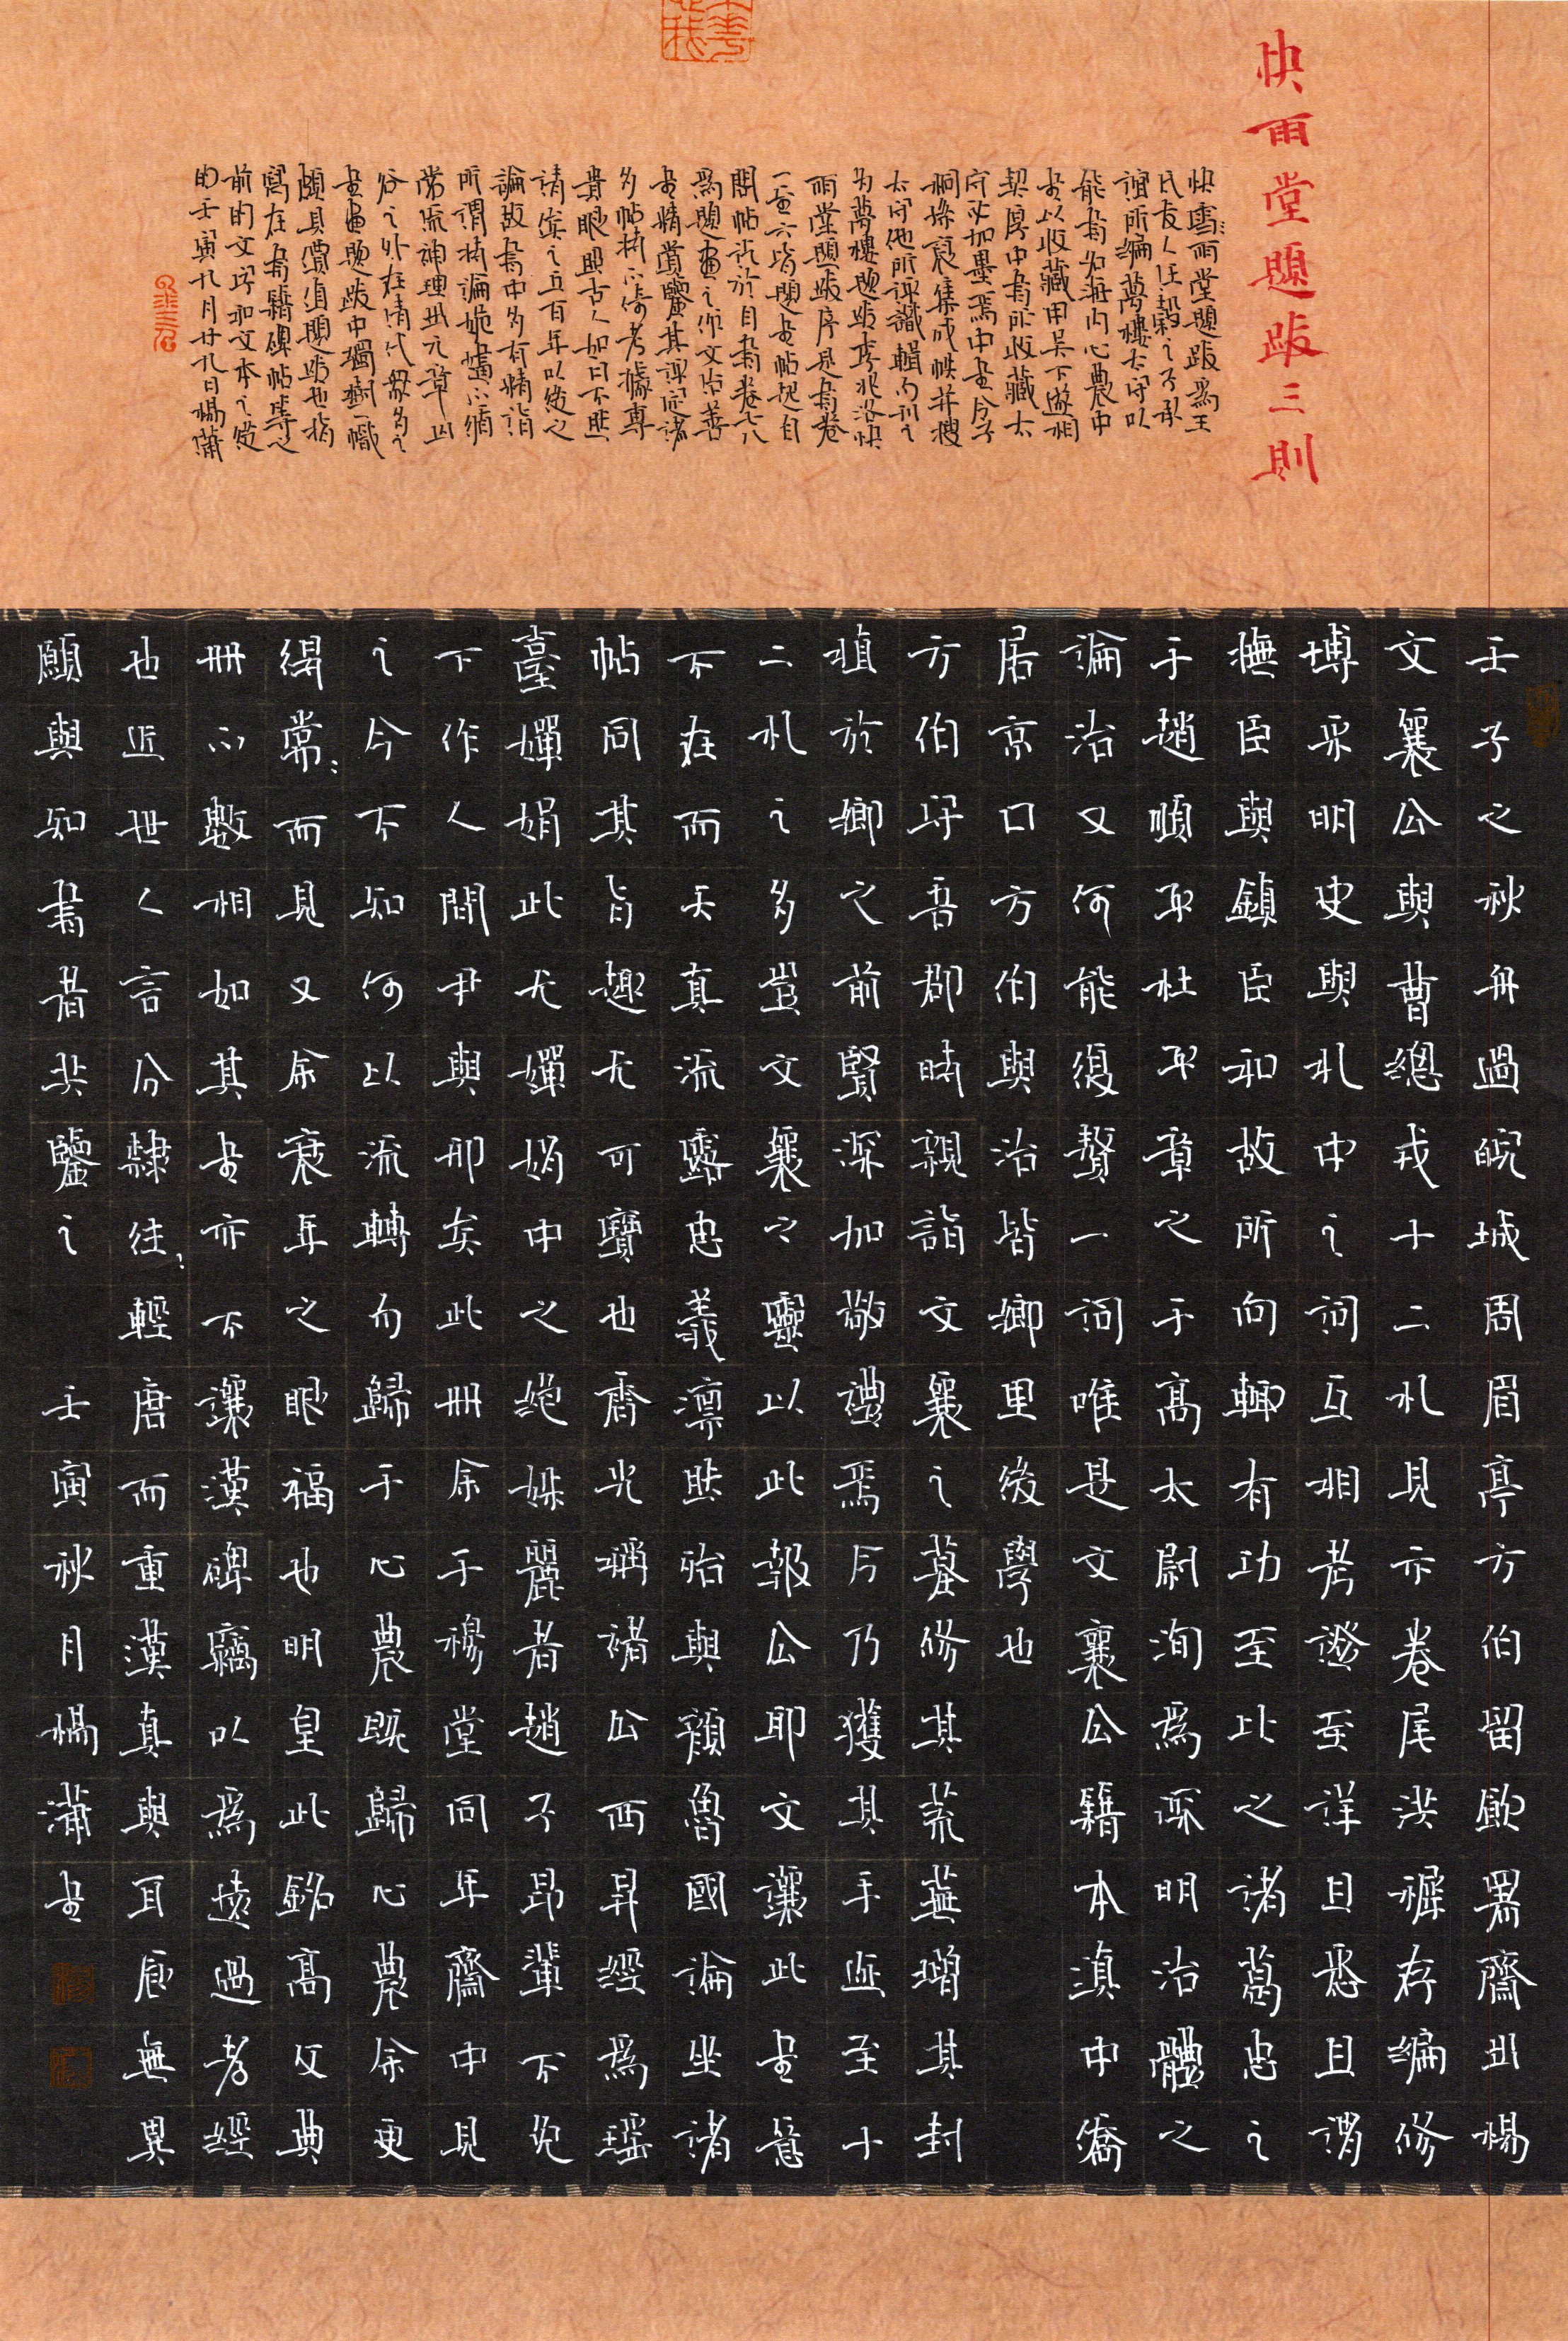 快雨堂題跋三則
快雪雨堂題跋爲王
氏友人汪穀之子承
誼所編夢樓太守以
能書名海內心農中
書以收藏甲吳下遂相
契厚中書所收藏太
守必加墨焉中書令子
桐孫裒集成帙并搜
太守他所評識輯而刊之
爲夢樓題跋李兆洛快
雨堂題跋序是書卷
一至六皆題書帖起自
閣帖訖於自書卷七八
爲題畫之作文治善
書精賞鑒其評定諸
多帖精不倚考據專
貴眼照古人如曰不然
請俟之五百年以後之
論故書中多有精詣
所謂精論如畫不循
常流神理與元章山
谷之外在清代衆多之
書畫題跋中獨樹一幟
頗具賞值題跋也揭
寫在書籍碑帖等之
前的文字和文本之後
的壬寅九月廿九日楊蒲
壬子之秋舟過皖城周眉亭方伯留飲署齋出楊
文襄公與曹總戎十二札見示卷尾洪稚存編修
博采明史與札中之詞互相考證至詳且悉且謂
撫臣與鎮臣和故所向輒有功至比之諸葛忠之
于趙順平杜平章之于高太尉洵爲深明治體之
論治又何能復贅一詞唯是文襄公籍本滇中僑
居京口方伯與治皆鄉里後學也
方伯守吾郡時親詣文襄之墓修其荒蕪增其封
植於鄉之前賢深加敬禮焉今乃獲其手迹至十
二札之多豈文襄之靈以此報公耶文讓此書意
不在而天真流露忠義凜然殆與顏魯國論坐諸
帖同其旨趣尤可寶也齊光稱褚公西昇經爲瑤
臺嬋娟此尤嬋娟中之絕姝麗者趙子昂輩不免
下作人間尹與邢矣此冊余于穆堂同年齋中見
之今不知何以流轉而歸于心農既歸心農余更
得常常而見又余衰年之眼福也明皇此銘高文典
冊不數相如其書亦不讓漢碑竊以爲遠過孝經
也近世人言分隸往往輕唐而重漢真與耳食無異
願與知書者共鑒之 壬寅秋月楊蒲書